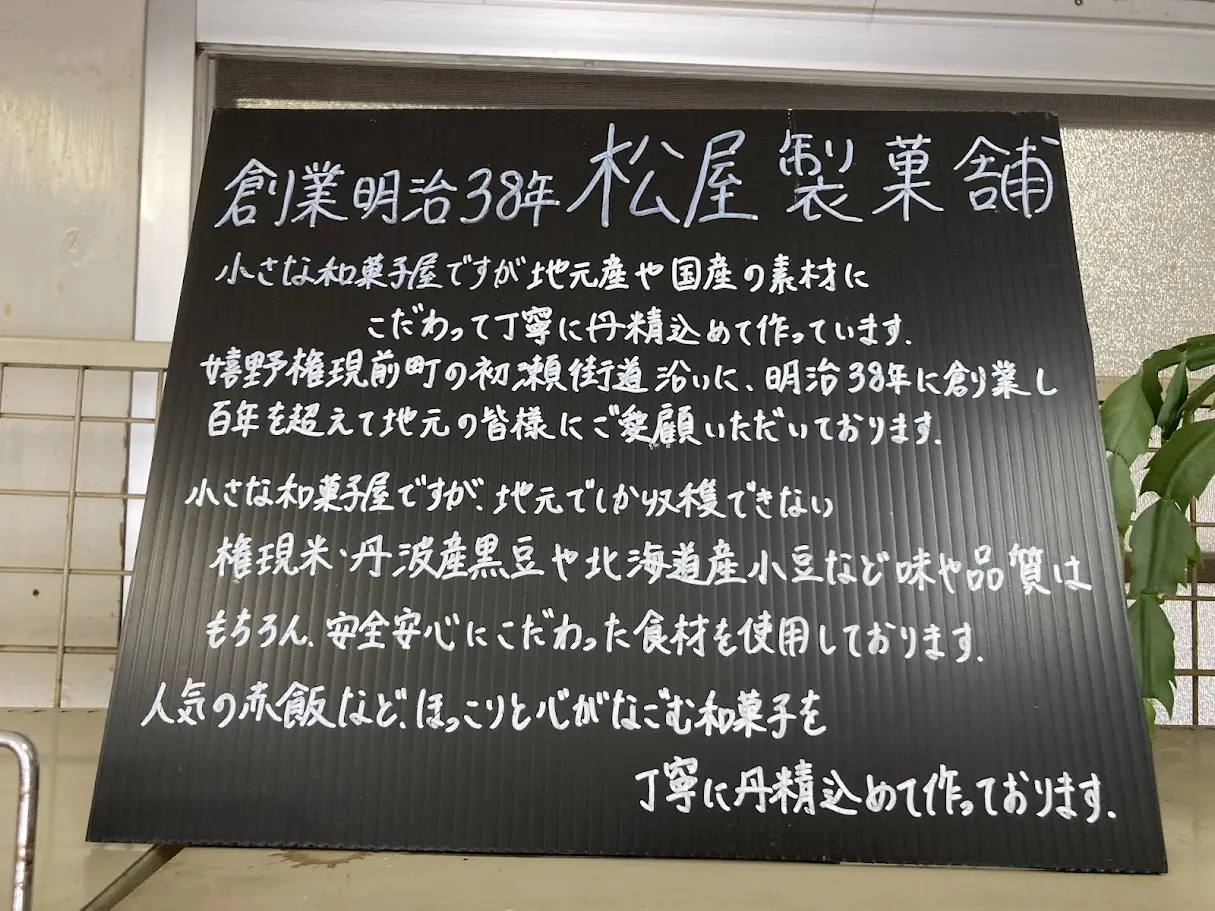 創業明治38年 松屋製菓舗
小さな和菓子屋ですが地元産や国産の素材に
こだわって丁寧に丹精込めて作っています.
嬉野権現前町の初瀬街道沿いに、明治38年に創業し
百年を超えて地元の皆様にご愛顧いただいております.
小さな和菓子屋ですが、地元でしか収穫できない
権現米・丹波産黒豆や北海道産小豆など味や品質は
もちろん、安全安心にこだわった食材を使用しております.
人気の赤飯など、ほっこりと心がなごむ和菓子を
丁寧に丹精込めて作っております.